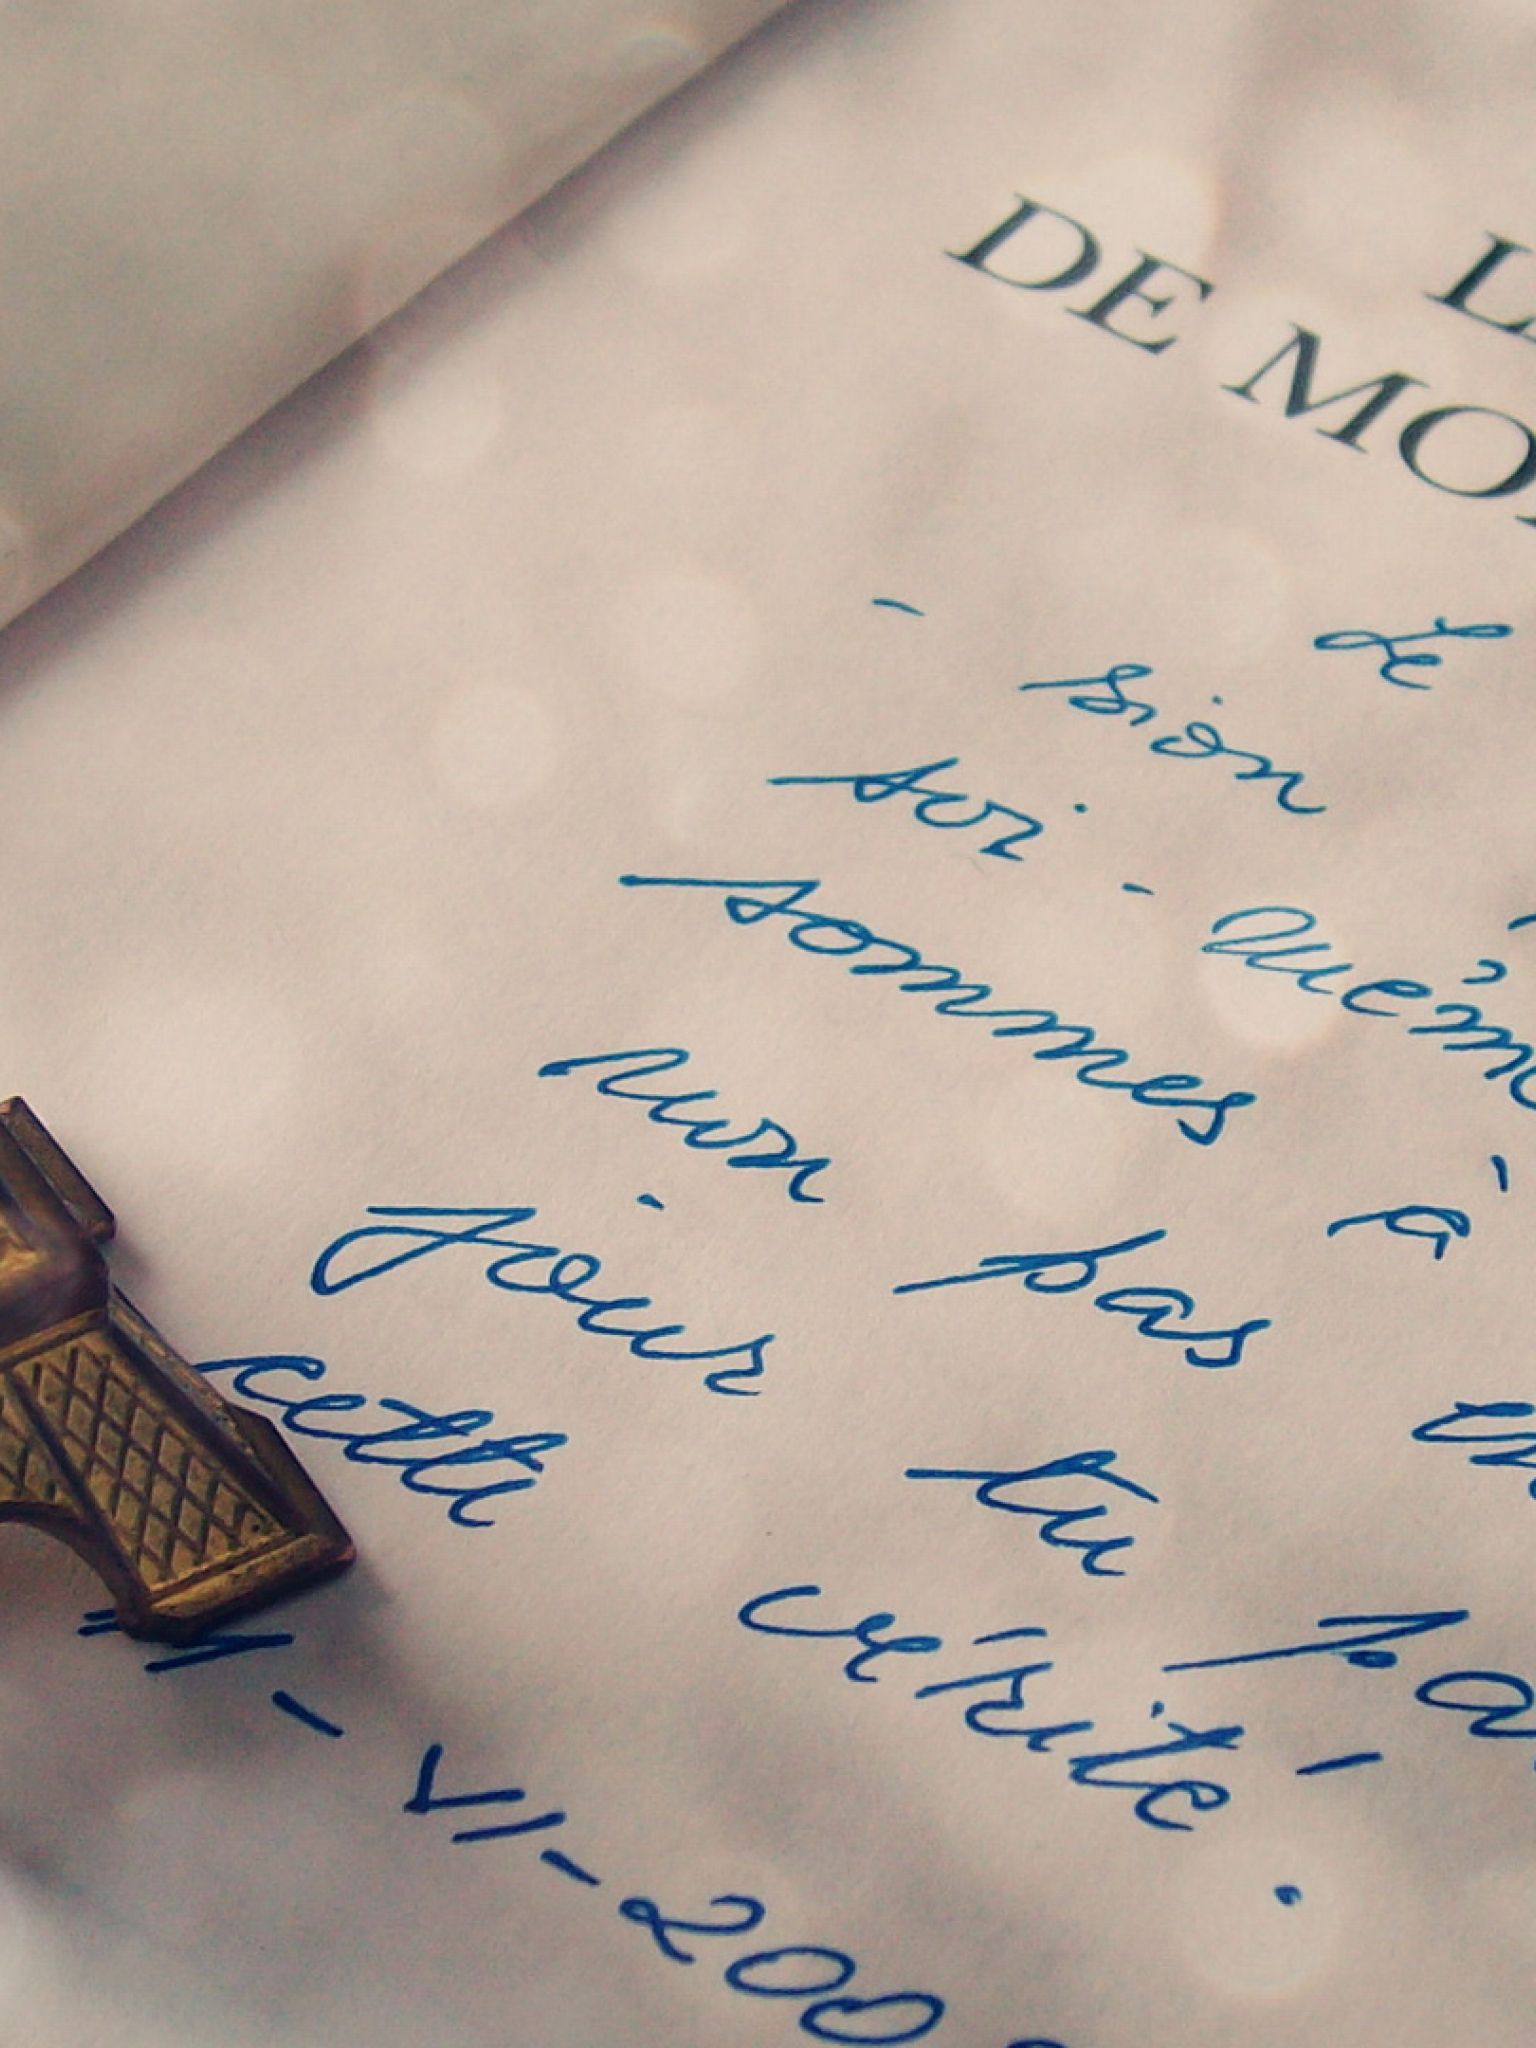 L
DE MO
Le
- sion
soi-même
sommes à
non pas en
jour tu
cette vérité.
11-VI-200